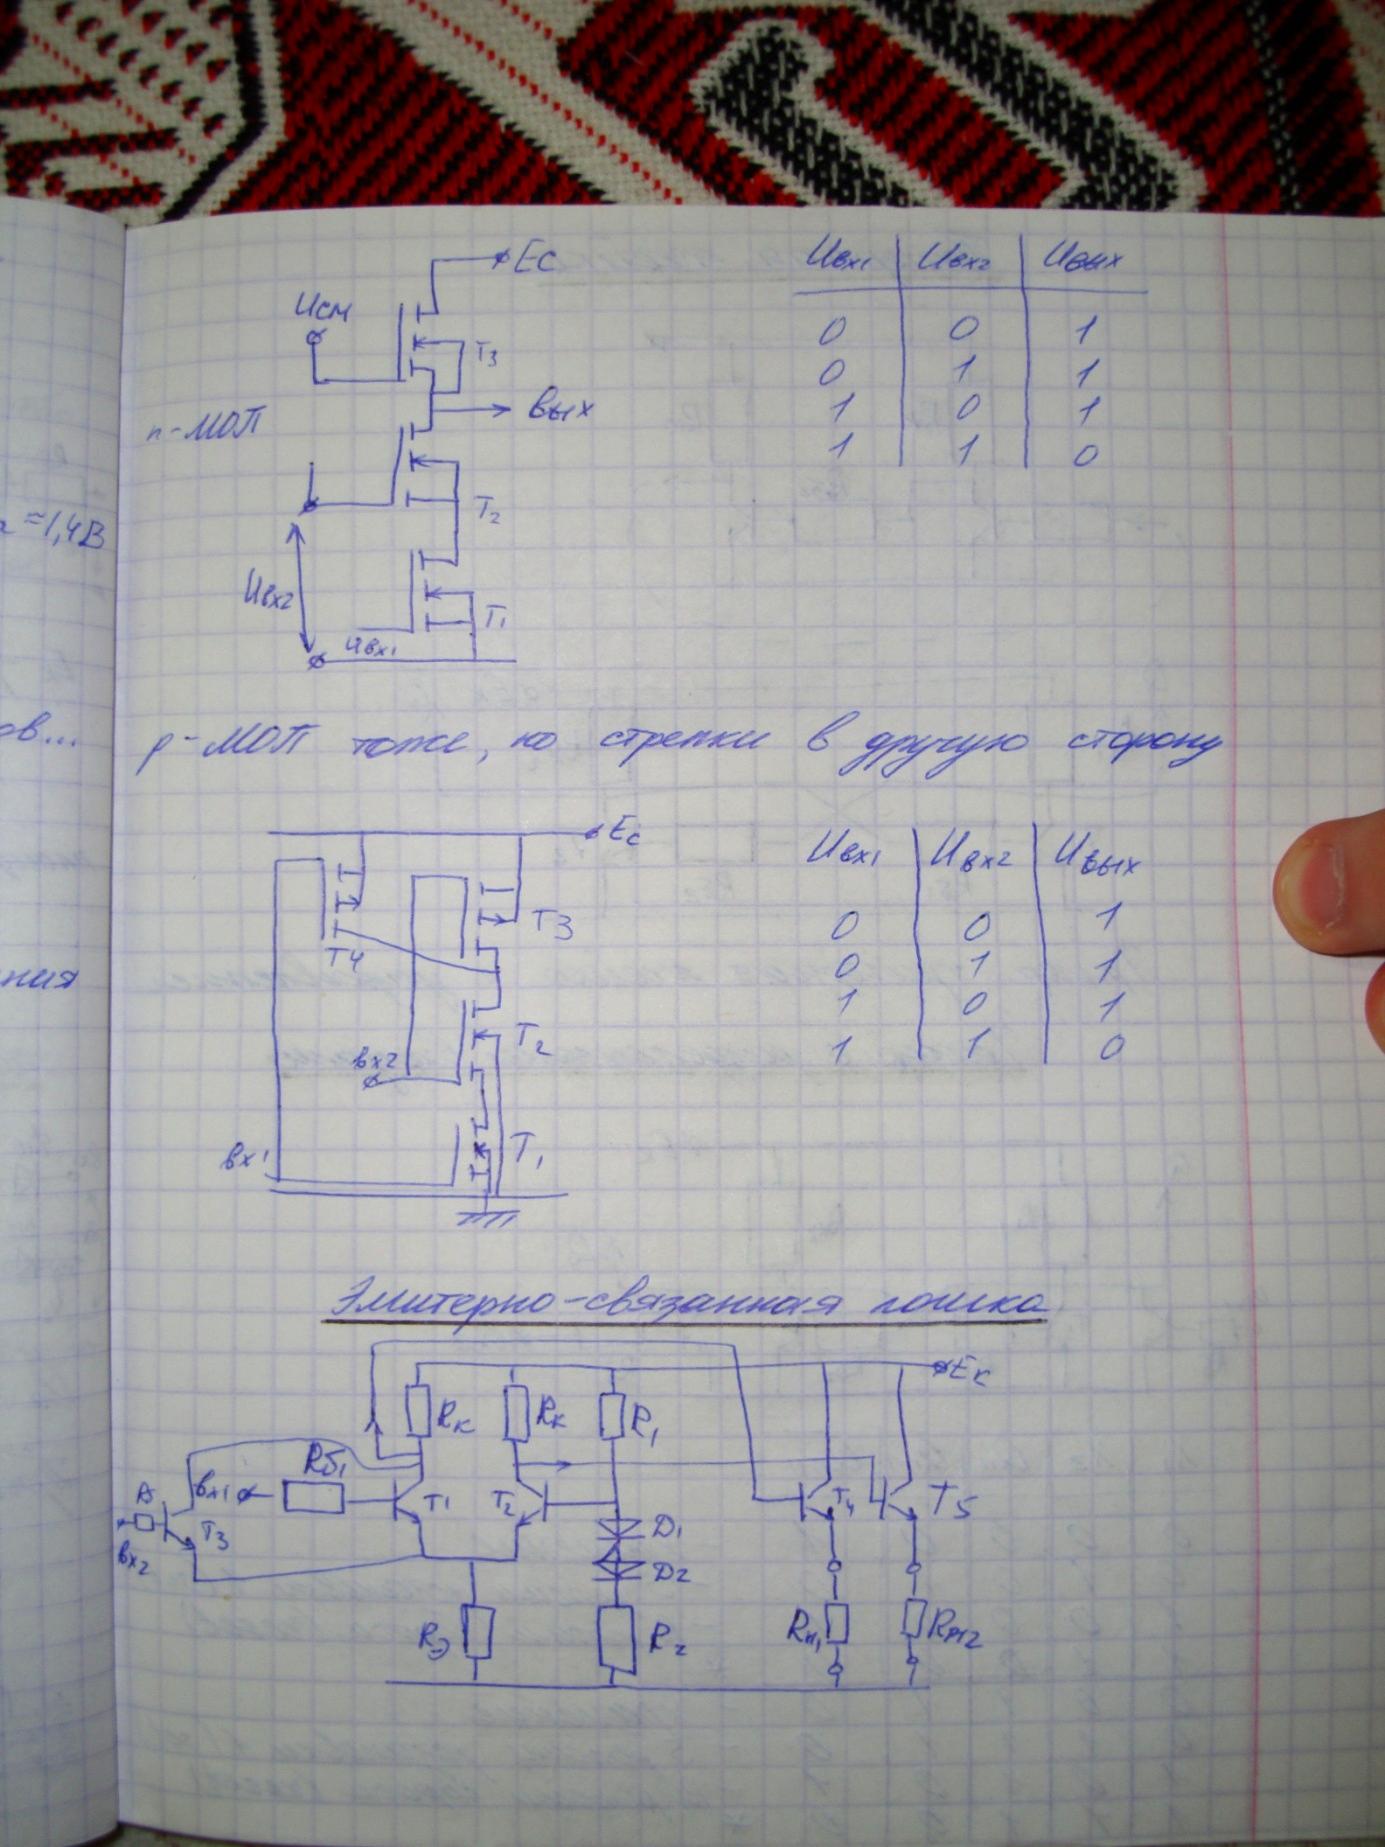 Eс
Uсм
T3
Вых
n-МОП
T2
Uвх2
T1
Uвх1
Uвх1 Uвх2 Uвых
0 0 1
0 1 1
1 0 1
1 1 0
≈1,4В
ов...
р-МОП тоже, но стрелки в другую сторону
Eс
T4
T3
вх2
T2
вх1
T1
Uвх1 Uвх2 Uвых
0 0 1
0 1 1
1 0 1
1 1 0
ния
Эмитерно-связанная логика
Eк
Rк Rк R1
Rб1
вх1
T1 T2 T4 T5
T3
вх2
D1
D2
Rэ R2 Rн1 Rн2